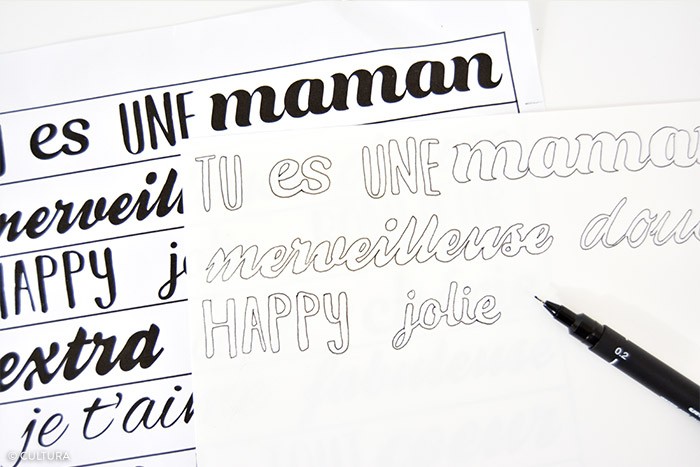 TU es UNE maman
merveilleuse
HAPPY
extra
je t'aim
TU es UNE maman
merveilleuse douc
HAPPY jolie
0.2
© CULTURA